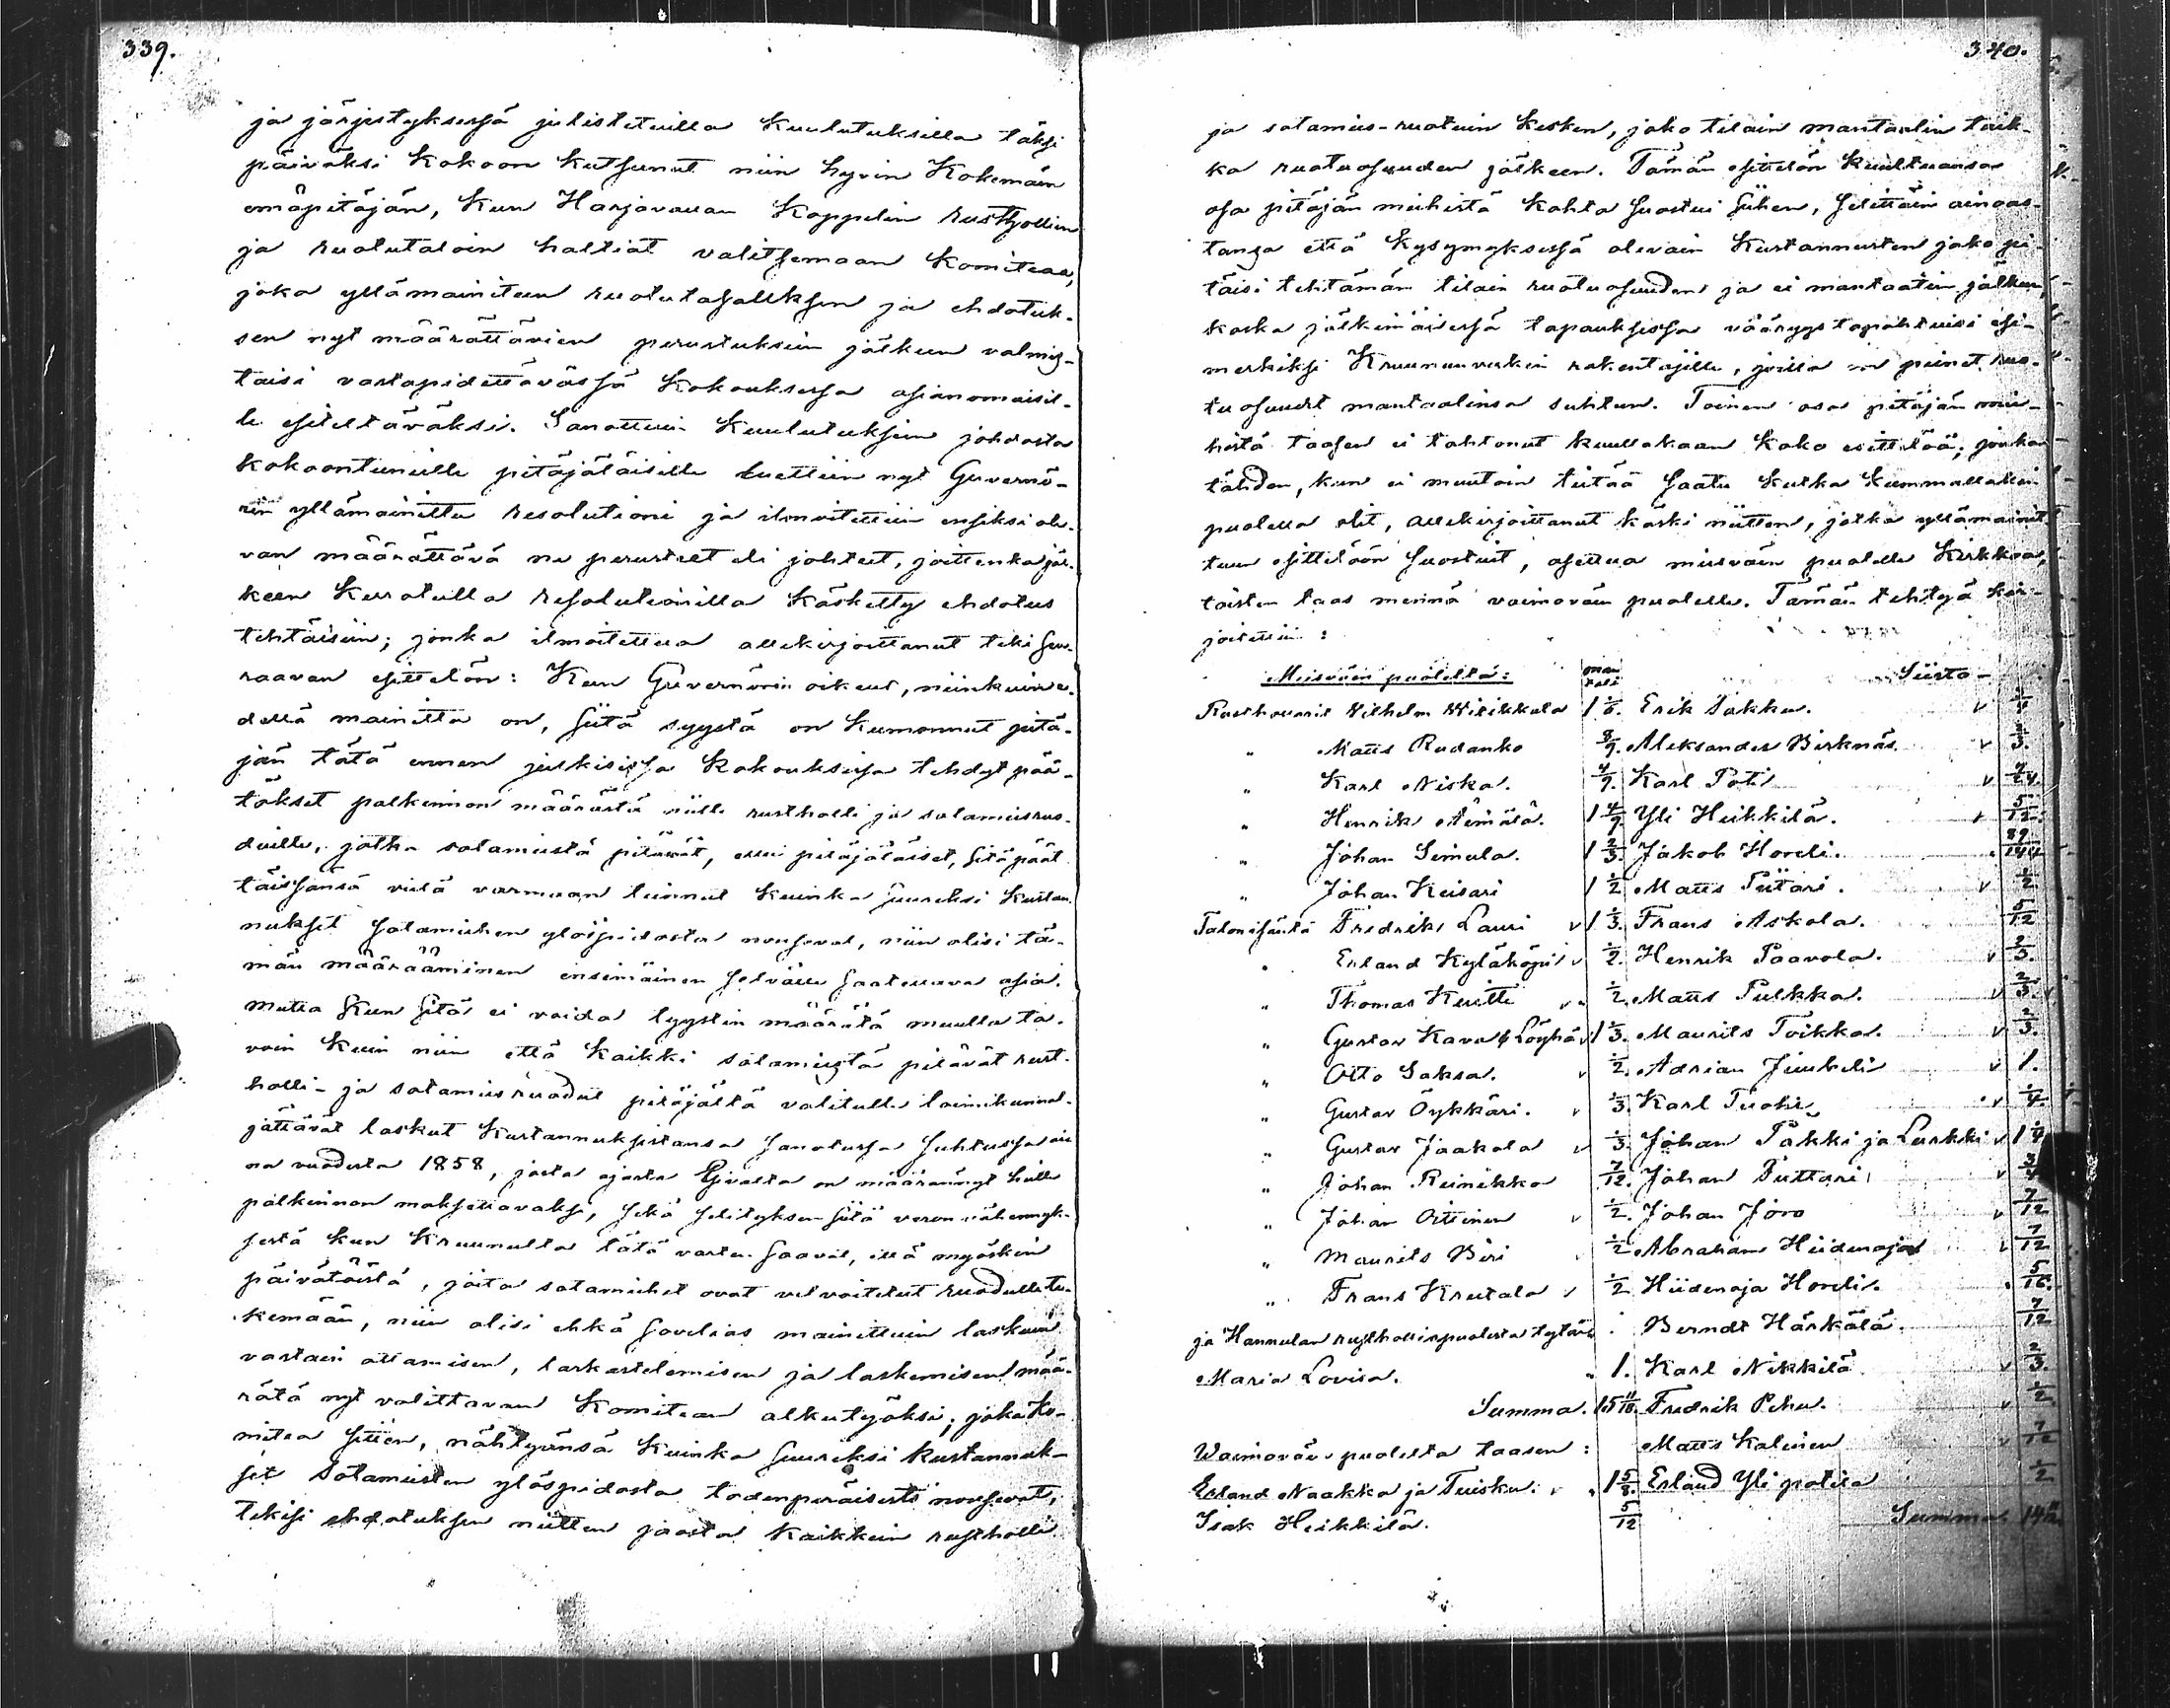 339.
ja järjestyksessä julistetuilla kuulutuksilla täksi
päiväksi kokoon kutsunut niin hyvin Kokemäen
emäpitäjän, kun Harjavallan Kappelin rusthollien
ja ruotutaloin haltiat valitsemaan Komiteaa,
joka yllämainitun ruotutasauksen ja ehdotuk-
sen nyt määrättävien perustuksien jälkeen valmis-
taisi vastapidettävässä Kokouksessa asianomaisil-
le esiteltäväksi. Sanottuin Kuulutuksien johdosta
kokoontuneille pitäjäläisille luettiin nyt Guvernö-
rin yllämainittu resolutioni ja ilmoitettiin ensiksi ole-
van määrättävä ne perusteet eli johteet, joittenka jäl-
keen kerrotulla resolutionilla käsketty ehdotus
tehtäisiin; jonka ilmoitettua allekirjoittanut teki seu-
raavan esittelön: Kun Guvernörin oikeus, niinkuin e-
dellä mainittu on, siitä syystä on kumonnut pitä-
jän tätä ennen julkisissa kokouksissa tehdyt pää-
tökset palkinnon määrästä niille rustholli ja sotamiesruo-
duille, jotka sotamiestä pitävät, ettei pitäjäläiset, sitä päät
täissänsä vielä varmaan tienneet kuinka suureksi kustan-
nukset sotamiehen ylöspidosta nousevat, niin olisi tä-
män määrääminen ensimäinen selvälle saatettava asia.
Mutta kun sitä ei voida tyystin määrätä muulla ta-
voin kuin niin että kaikki sotamiestä pitävät rust-
holli- ja sotamiesruodut pitäjältä valitulle toimikunnal-
jättävät laskut kustannuksistansa sanotussa suhteessa ai-
na vuodesta 1858, josta ajasta on määrännyt heille
palkinnon maksettavaksi, sekä selityksen siitä veron vähennyk-
sestä kun Kruunulta tätä vastaan saavat, että myöskin
päivätöistä, joita sotamiehet ovat velvoitetut ruodulle te-
kemään, niin olisi ehkä sovelias mainittuin laskuin
vastaan ottamisen, tarkastelemisen ja laskemisen mää-
rätä nyt valittavan Komitean alkutyöksi; joka ko-
mitea sitten, nähtyänsä kuinka suureksi kustannuk-
set sotamiesten ylöspidosta todenperäisesti nousevat,
tekisi ehdotuksen niitten jaosta kaikkein rustholli
340.
ja sotamies-ruotuin kesken, joko tilain mantaalin taik-
ka ruotuosuuden jälkeen. Tämän esittelön kuultuansa
osa pitäjän miehistä kohta suostui siihen, selittäin ainoas-
tansa että kysymyksessä olevain kustannusten jako pi-
täisi tehtämän tilain ruotuosuuden ja ei mantaalin jälkeen,
koska jälkimäisessä tapauksessa vääryys tapahtuisi esi-
merkiksi Kruununverkin rakentajille, joilla on pienet ruo-
tuosuudet mantaalinsa suhteen. Toinen osa pitäjän mie-
histä taasen ei tahtonut kuullakaan koko esittelöä; jonka
tähden, kun ei muutoin tietää saatu kutka kummallakin
puolella olit, allekirjoittanut käski niitten, jotka yllämainit-
tuun esittelöön suostuit, asettua miesväin puolelle Kirkkoa,
toisten taas mennä vaimoväin puolelle. Tämän tehtyä kir-
joitettiin:
Miesväin puolelta: man taali Siirto -
Rusthollarit Vilhelm Witikkala 1 1/6. Erik Takku.
" Matts Rudanko 8/9. Aleksander Birknäs. 1/3.
" Karl Niska. 4/9. Karl Poti 7/24.
" Henrik Äimälä. 1 4/9. Yli Heikkilä. 5/12.
" Johan Seimula. 1 2/3. Jakob Hoveli. 89/144
" Johan Keisari 1 1/2 Matts Piitari. 1/2.
Talonisäntä Fredrik Lauri 1 1/3. Frans Askola. 5/12
" Erland Kyläköpsi 1/2. Henrik Paavola. 2/3.
" Thomas Kuitti 1/2. Matts Pulkka. 2/3.
" Gustav Kava & Löyhä 1 1/3. Maurits Toikka. 2/3.
" Otto Saksa. 1/2. Adrian Juuheli 1.
" Gustav Öykkäri. 1/3. Karl Tuohi 1/4.
" Gustav Jaakola 1/3. Johan Pakki ja Luukki 1 1/4
" Johan Reinikka 7/12. Johan Puttari 3/4
" Johan Oittinen 1/2. Johan Joro 7/12
" Maurits Biri 1/2 Abraham Hiidenoja 7/12
" Frans Kreetala 1/2 Hiidenoja Hoveli. 5/16.
ja Hannulan rusthollin puolesta tytär Berndt Härkälä. 7/12
Maria Lovisa. 1. Karl Nikkilä 2/3.
Summa. 15 11/18. Fredrik Pehu. 1/2.
Waimoväin puolelta taasen: Matts Kaleinen 7/12
Erland Naakka ja Tuisku. 1 5/8. Erland Ylipotila 1/2
Isak Heikkilä. 5/12 Summa. 14